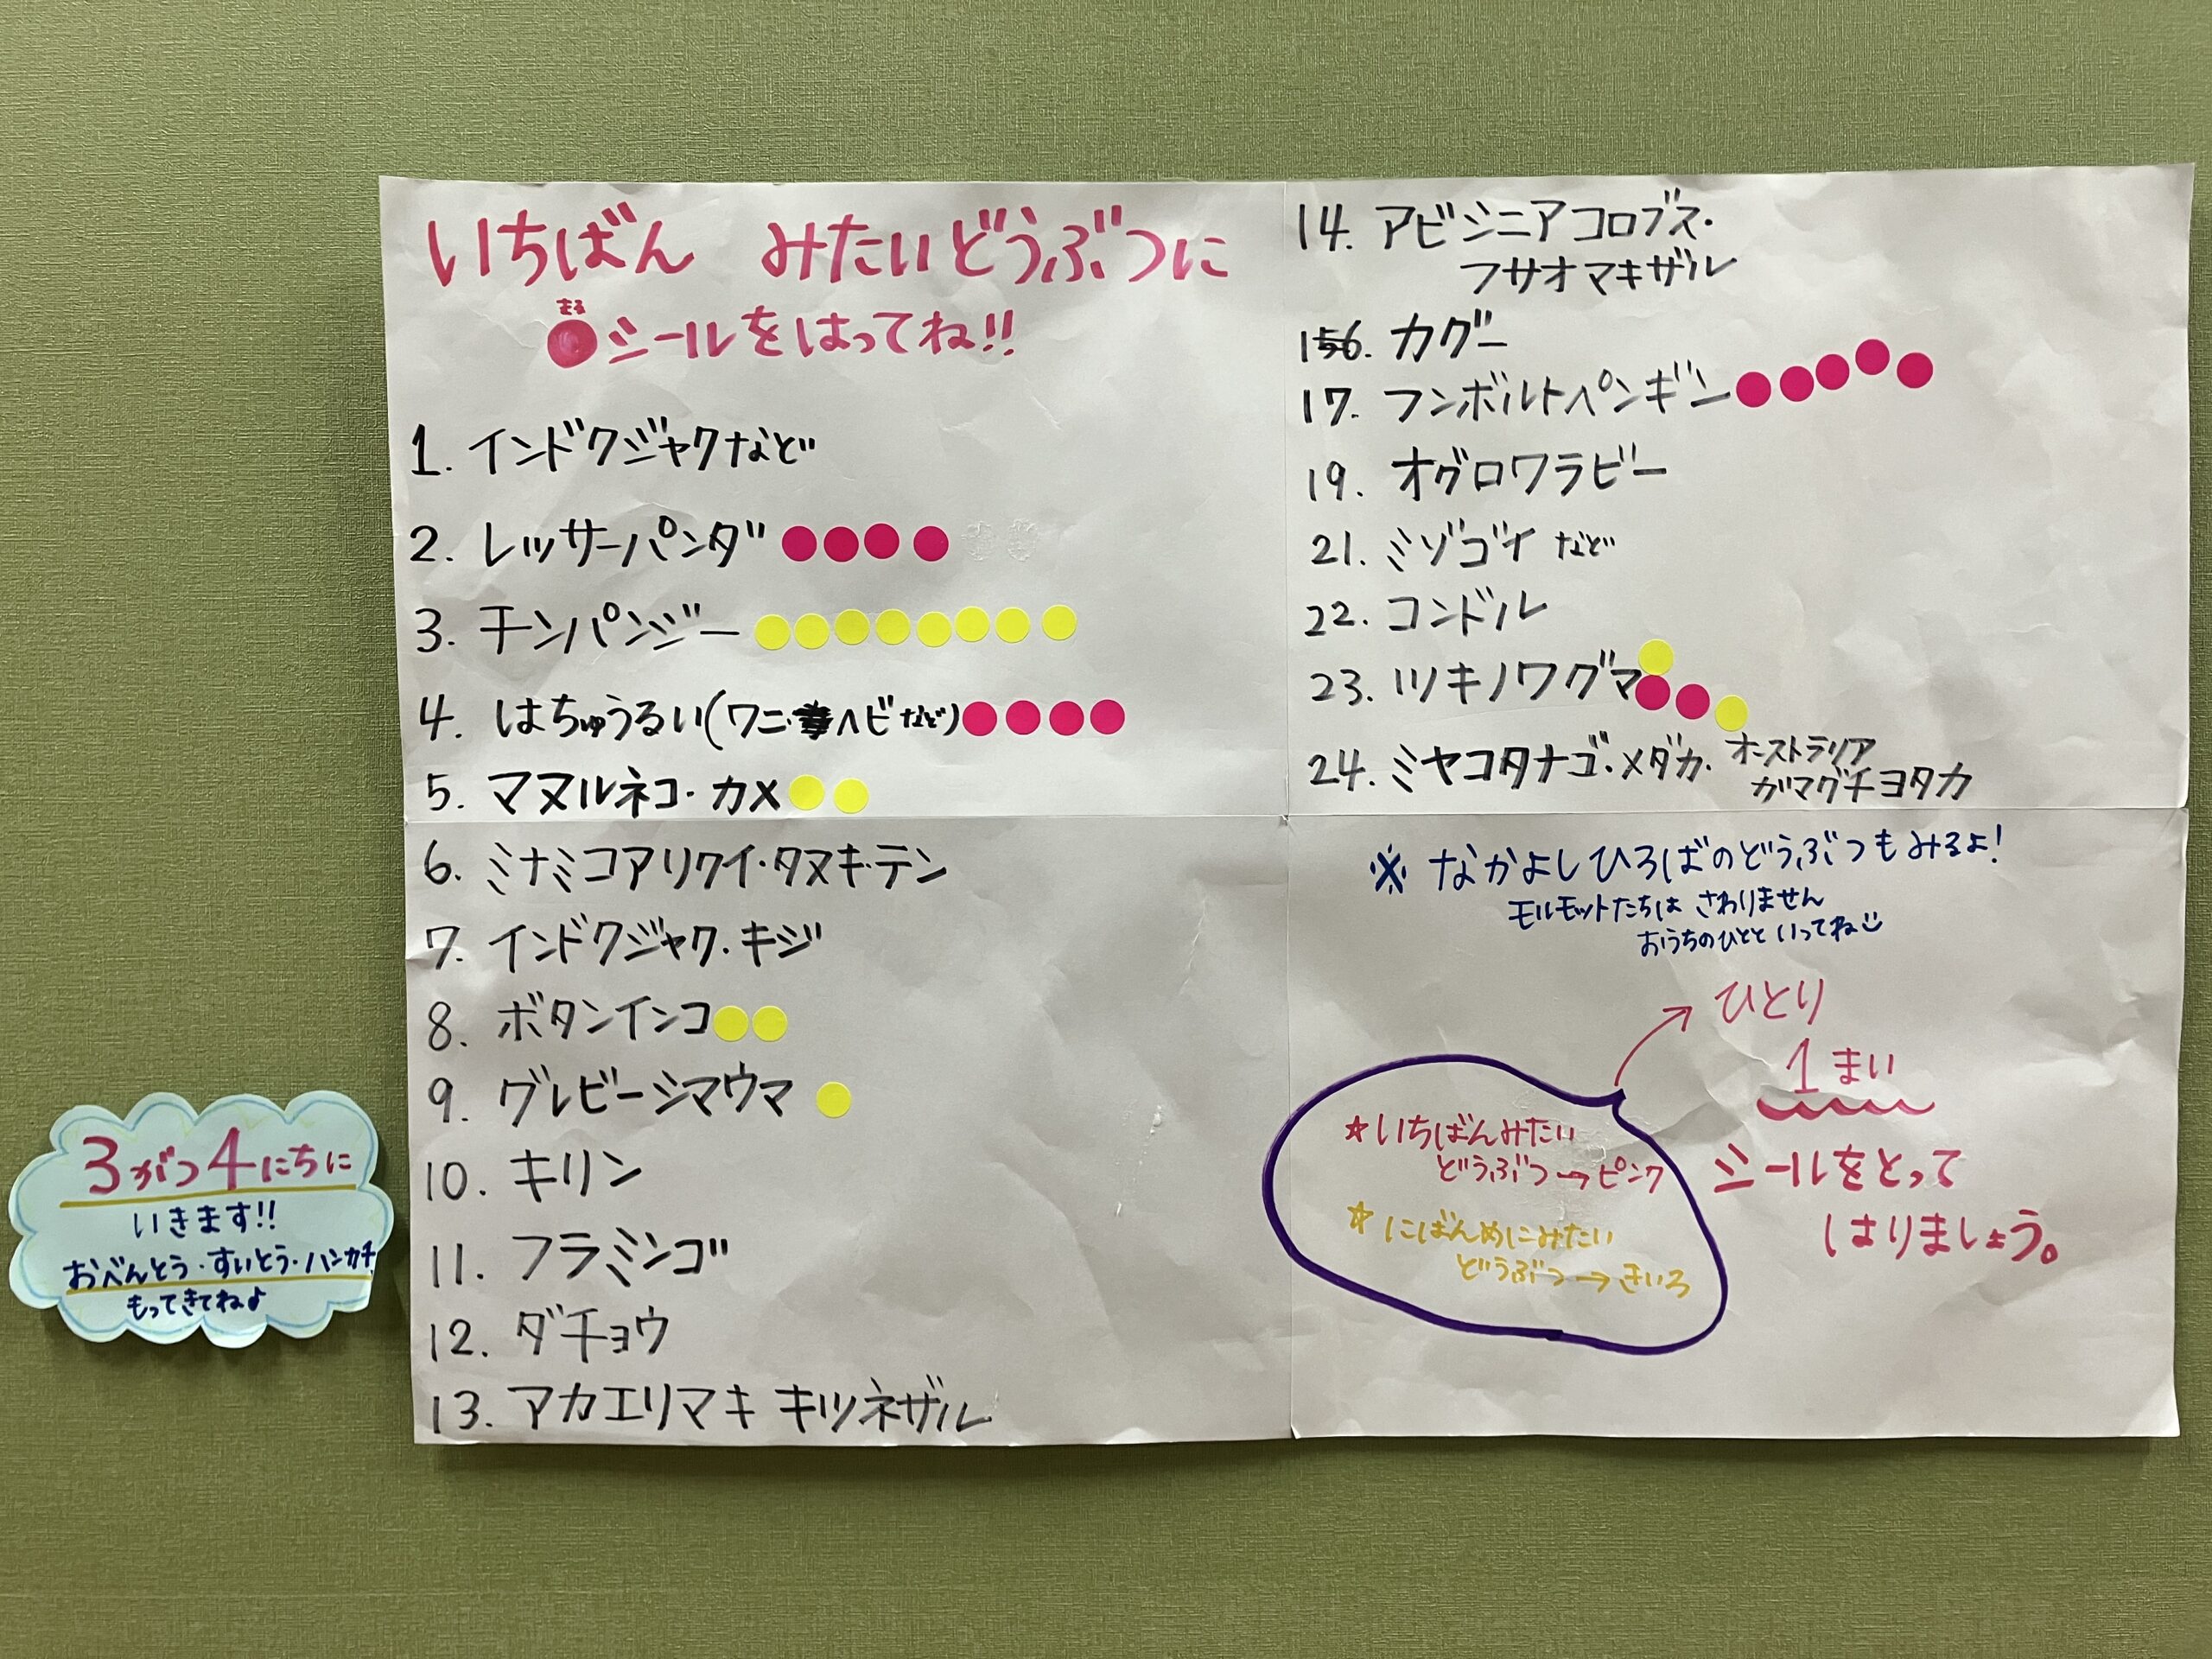 いちばん みたいどうぶつに
まる
シールをはってね!!
1. インドクジャクなど
2. レッサーパンダ
3. チンパンジー
4. はちゅうるい(ワニ・ヘビなど)
5. マヌルネコ・カメ
6. ミナミコアリクイ・タヌキ・テン
7. インドクジャク・キジ
8. ボタンインコ
9. グレビーシマウマ
10. キリン
11. フラミンゴ
12. ダチョウ
13. アカエリマキ キツネザル
14. アビシニアコロブス・
フサオマキザル
16. カグー
17. フンボルトペンギン
19. オグロワラビー
21. ミゾゴイ など
22. コンドル
23. ツキノワグマ
24. ミヤコタナゴ・メダカ・オーストラリア
ガマグチヨタカ
※ なかよしひろばのどうぶつもみるよ!
モルモットたちは さわりません
おうちのひとと いってね
ひとり
1まい
シールをとって
はりましょう。
☆いちばんみたい
どうぶつ→ピンク
☆にばんめにみたい
どうぶつ→きいろ
3がつ4にちに
いきます!!
おべんとう・すいとう・ハンカチ
もってきてね♪